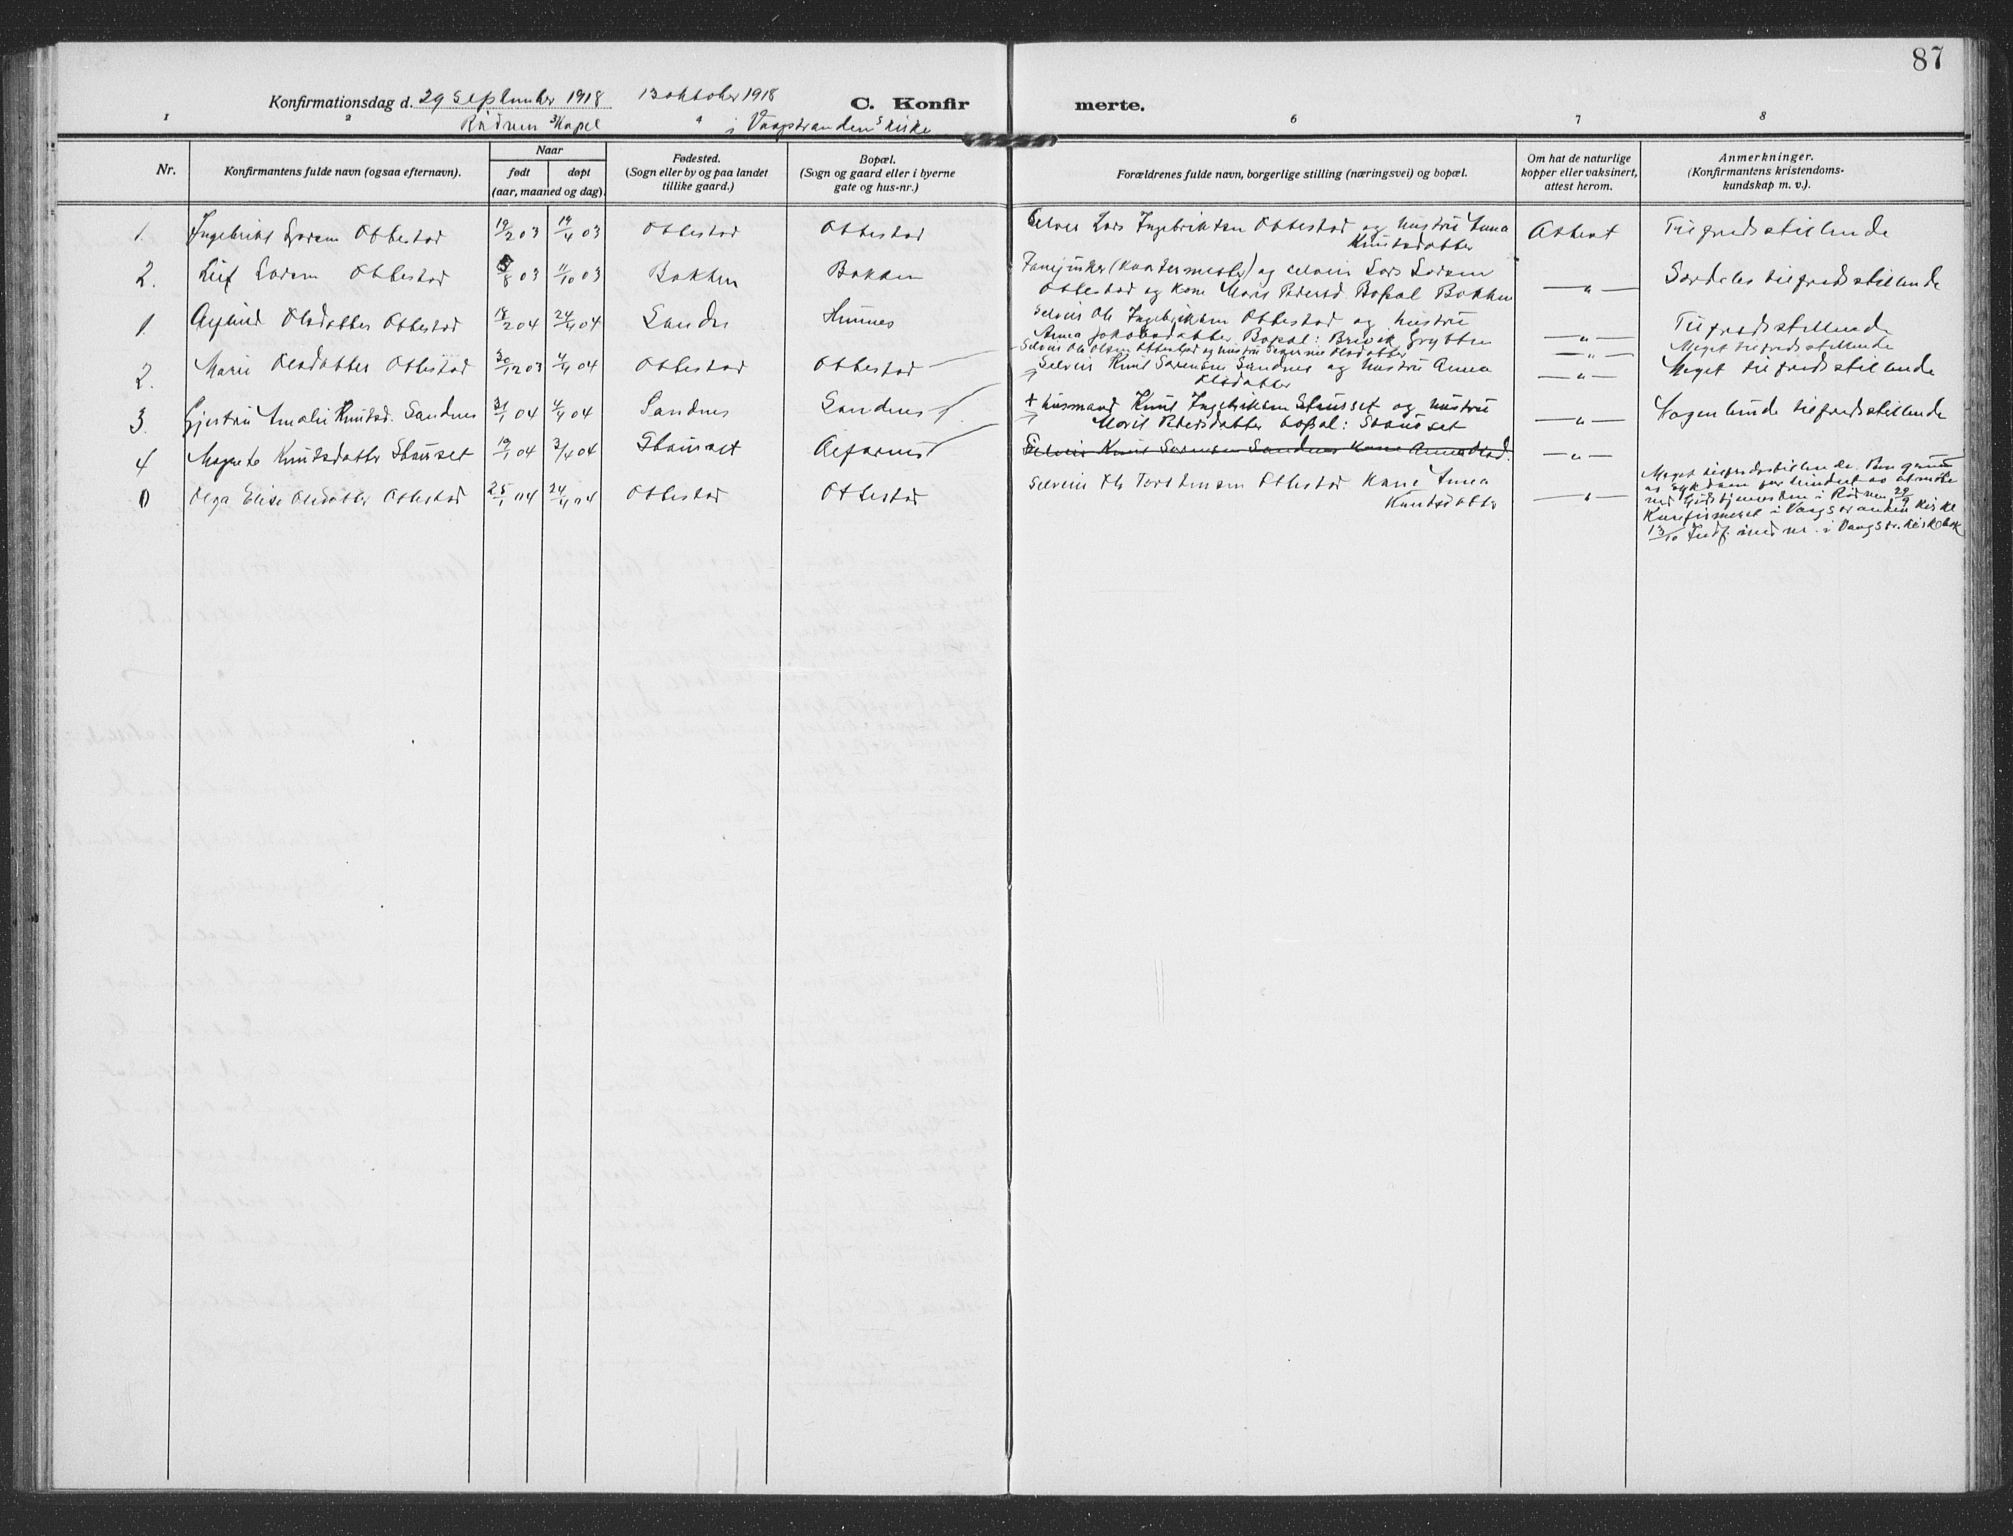 87
Konfirmationsdag d. 29 September 1918 13 oktober 1918 C. Konfir merte.
1 2 3 4 5 6 7 8
Rødven Kapel i Vaagstranden Kirke
Nr. Konfirmantens fulde navn (ogsaa efternavn). Naar født døpt (aar, maaned og dag). Fødested. (Sogn eller by og paa landet tillike gaard.) Bopæl. (Sogn og gaard eller i byerne gate og hus-nr.) Forældrenes fulde navn, borgerlige stilling (næringsvei) og bopæl. Om hat de naturlige kopper eller vaksinert, attest herom. Anmerkninger. (Konfirmantens kristendoms-kundskap m. v.).
1. Ingebrikt Larsen Ottestad 19/2 03 19/4 03 Ottestad Ottestad Selveier Lars Ingebriktsen Ottestad og hustru Anna Attest Tilfredsstillende
Knutsdatter
2. Leif Larsen Ottestad 5/8 03 11/10 03 Bakken Bakken Fanejunker (Kvartermester) og selveier Lars Larsen
Ottestad og Kone Marit Pedersd. Bopæl Bakken —„— Særdeles tilfredsstillende
1 Olsdatter Ottestad 18/2 04 24/4 04 Sandnes Hunnes Selveier Ole Ingebriktsen Ottestad og hustru
Anna Jakobsdatter Bopæl: Brevik Grytten —„— Tilfredsstillende
Selveier Ole Olsen Ottestad og hustru Olsdatter —„— Meget tilfredsstillende
2. Marie Olsdatter Ottestad 30/12 03 4/4 04 Ottestad Ottestad Selveier Knut Sørensen Sandnes og hustru Anna —„— Meget tilfredsstillende
Olsdatter
3. Gjertru Amalie Knutsd. Sandnes 31/1 04 4/4 04 Sandnes Sandnes + husmand Knut Ingebriktsen Staurset og hustru
Marit Pedersdatter bopæl: Staurset —„— Nogenlunde tilfredsstillende
4 Magnete Knutsdatter Staurset 19/1 04 3/4 04 Staurset Alfarnes Selveier Knut Sørensen Sandnes Kone Anna Olsd. —„—
0 Olga Elise Olsdatter Ottestad 25/1 04 24/4 04 Ottestad Ottestad Selveier Ole Torstensen Ottestad Kone Anna
Knutsdatter —„— Meget tilfredsstillende. Paa grund
av sykdom forhindret av at møte
ved Gudstjenesten i Rødven 29/9
Konfirmeret i Vaagstranden kirke
13/10 Indf. med nr. i Vaagstr. kirkebok